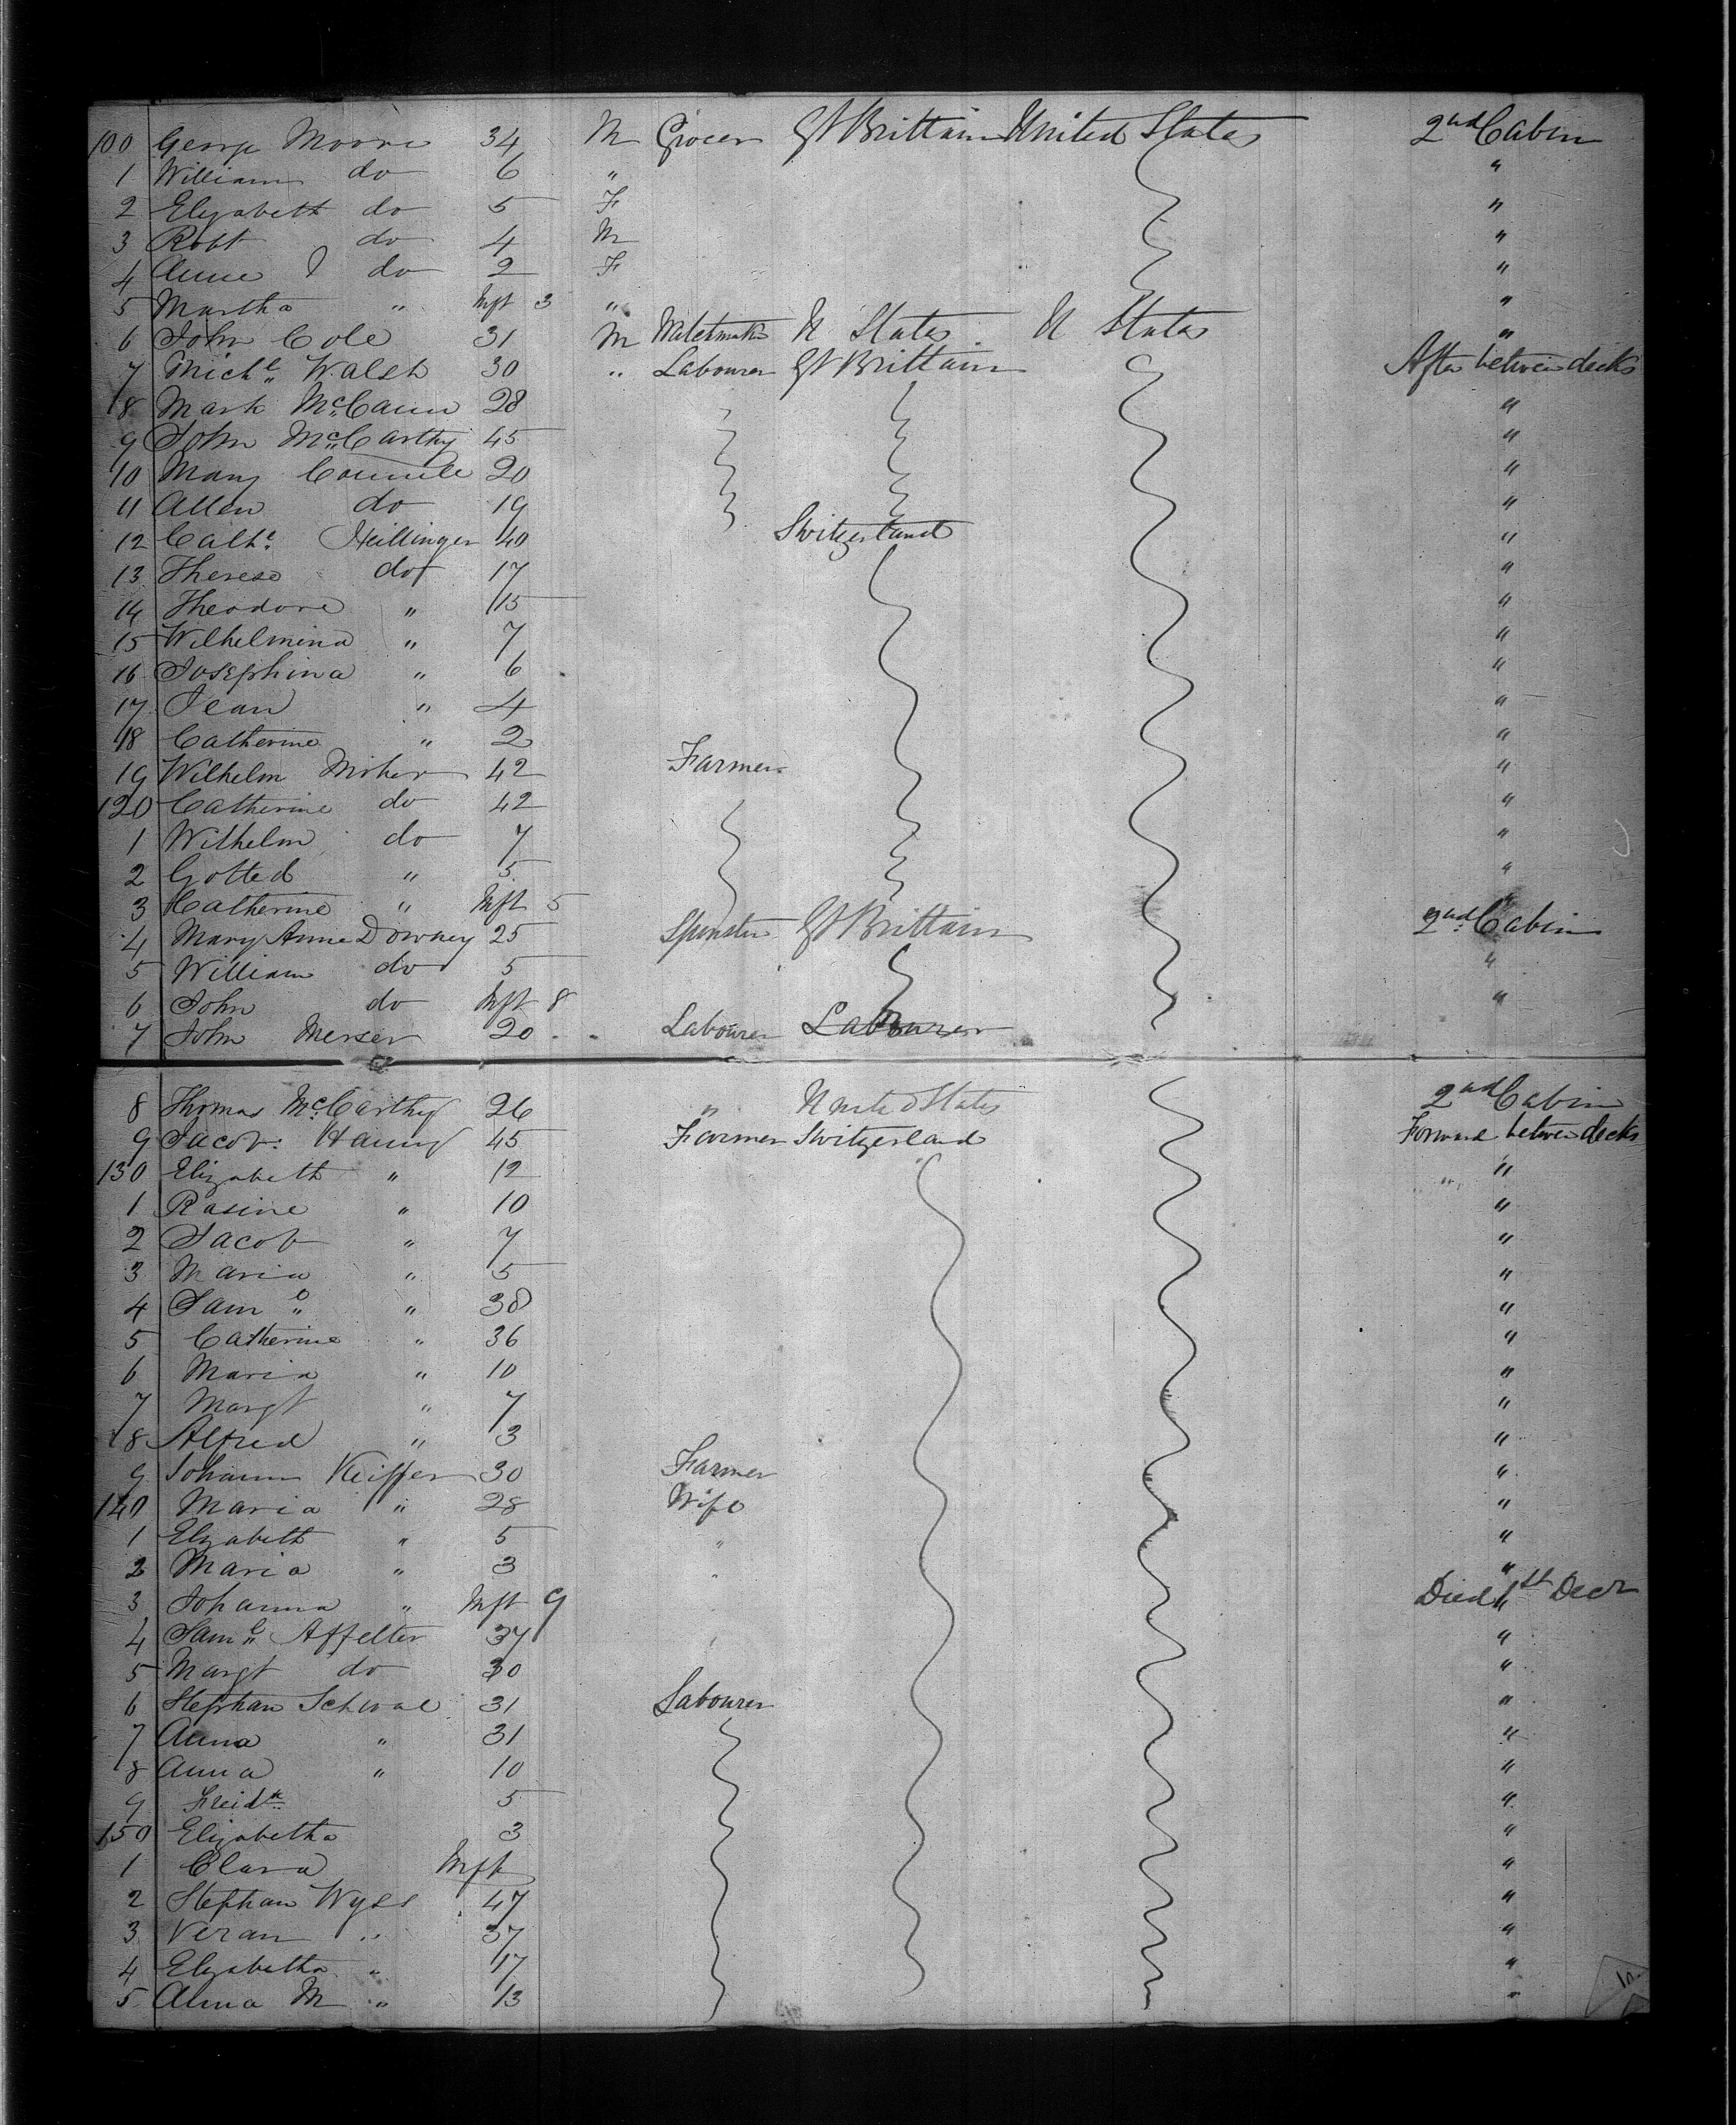 100 George Moore 34 M Grocer Gt Brittain United States 2nd Cabin
1 William do 6 " "
2 Elizabeth do 5 F "
3 Robt do 4 M "
4 Anne J do 2 F "
5 Martha " Inft 3 " "
6 John Cole 31 M Watchmaker U States U States "
7 Michl Walsh 30 " Labourer Gt Brittain After between decks
8 Mark McCann 28 "
9 John McCarthy 45 "
10 Mary 20 "
11 Allen do 19 "
12 Cathe Heillinger 40 Switzerland "
13 Therese do 17 "
14 Theodore " 15 "
15 Wilhelmina " 7 "
16 Josephina " 6 "
17 Jean " 4 "
18 Catherine " 2 "
19 Wilhelm 42 Farmer "
120 Catherine do 42 "
1 Wilhelm do 7 "
2 Gotted " 5 "
3 Catherine " Inft 5 "
4 Mary Anne Downey 25 Spinster Gt Brittain 2nd Cabin
5 William do 5 "
6 John do Inft 8 "
7 John Merser 20 Labourer Labourer
8 Thomas McCarthy 26 " United States 2nd Cabin
9 Jacob 45 Farmer Switzerland Forward between decks
130 Elizabeth " 12 "
1 Rosine " 10 "
2 Jacob " 7 "
3 Maria " 5 "
4 Saml " 38 "
5 Catherine " 36 "
6 Maria " 10 "
7 Margt " 7 "
8 Alfred " 3 "
9 Johann Keiffer 30 Farmer "
140 Maria " 28 Wife "
1 Elizabeth " 5 " "
2 Maria " 3 " "
3 Johanna " Inft 9 Died 1st Decr
4 Saml Affelter 37 "
5 Margt do 30 "
6 Stephan Schwal 31 Labourer "
7 Anna " 31 "
8 Anna " 10 "
9 Freidk 5 "
150 Elizabetha 3 "
1 Clara Inft "
2 Stephan Wyss 47 "
3 Veran " 37 "
4 Elizabetha " 17 "
5 Anna M " 13 "